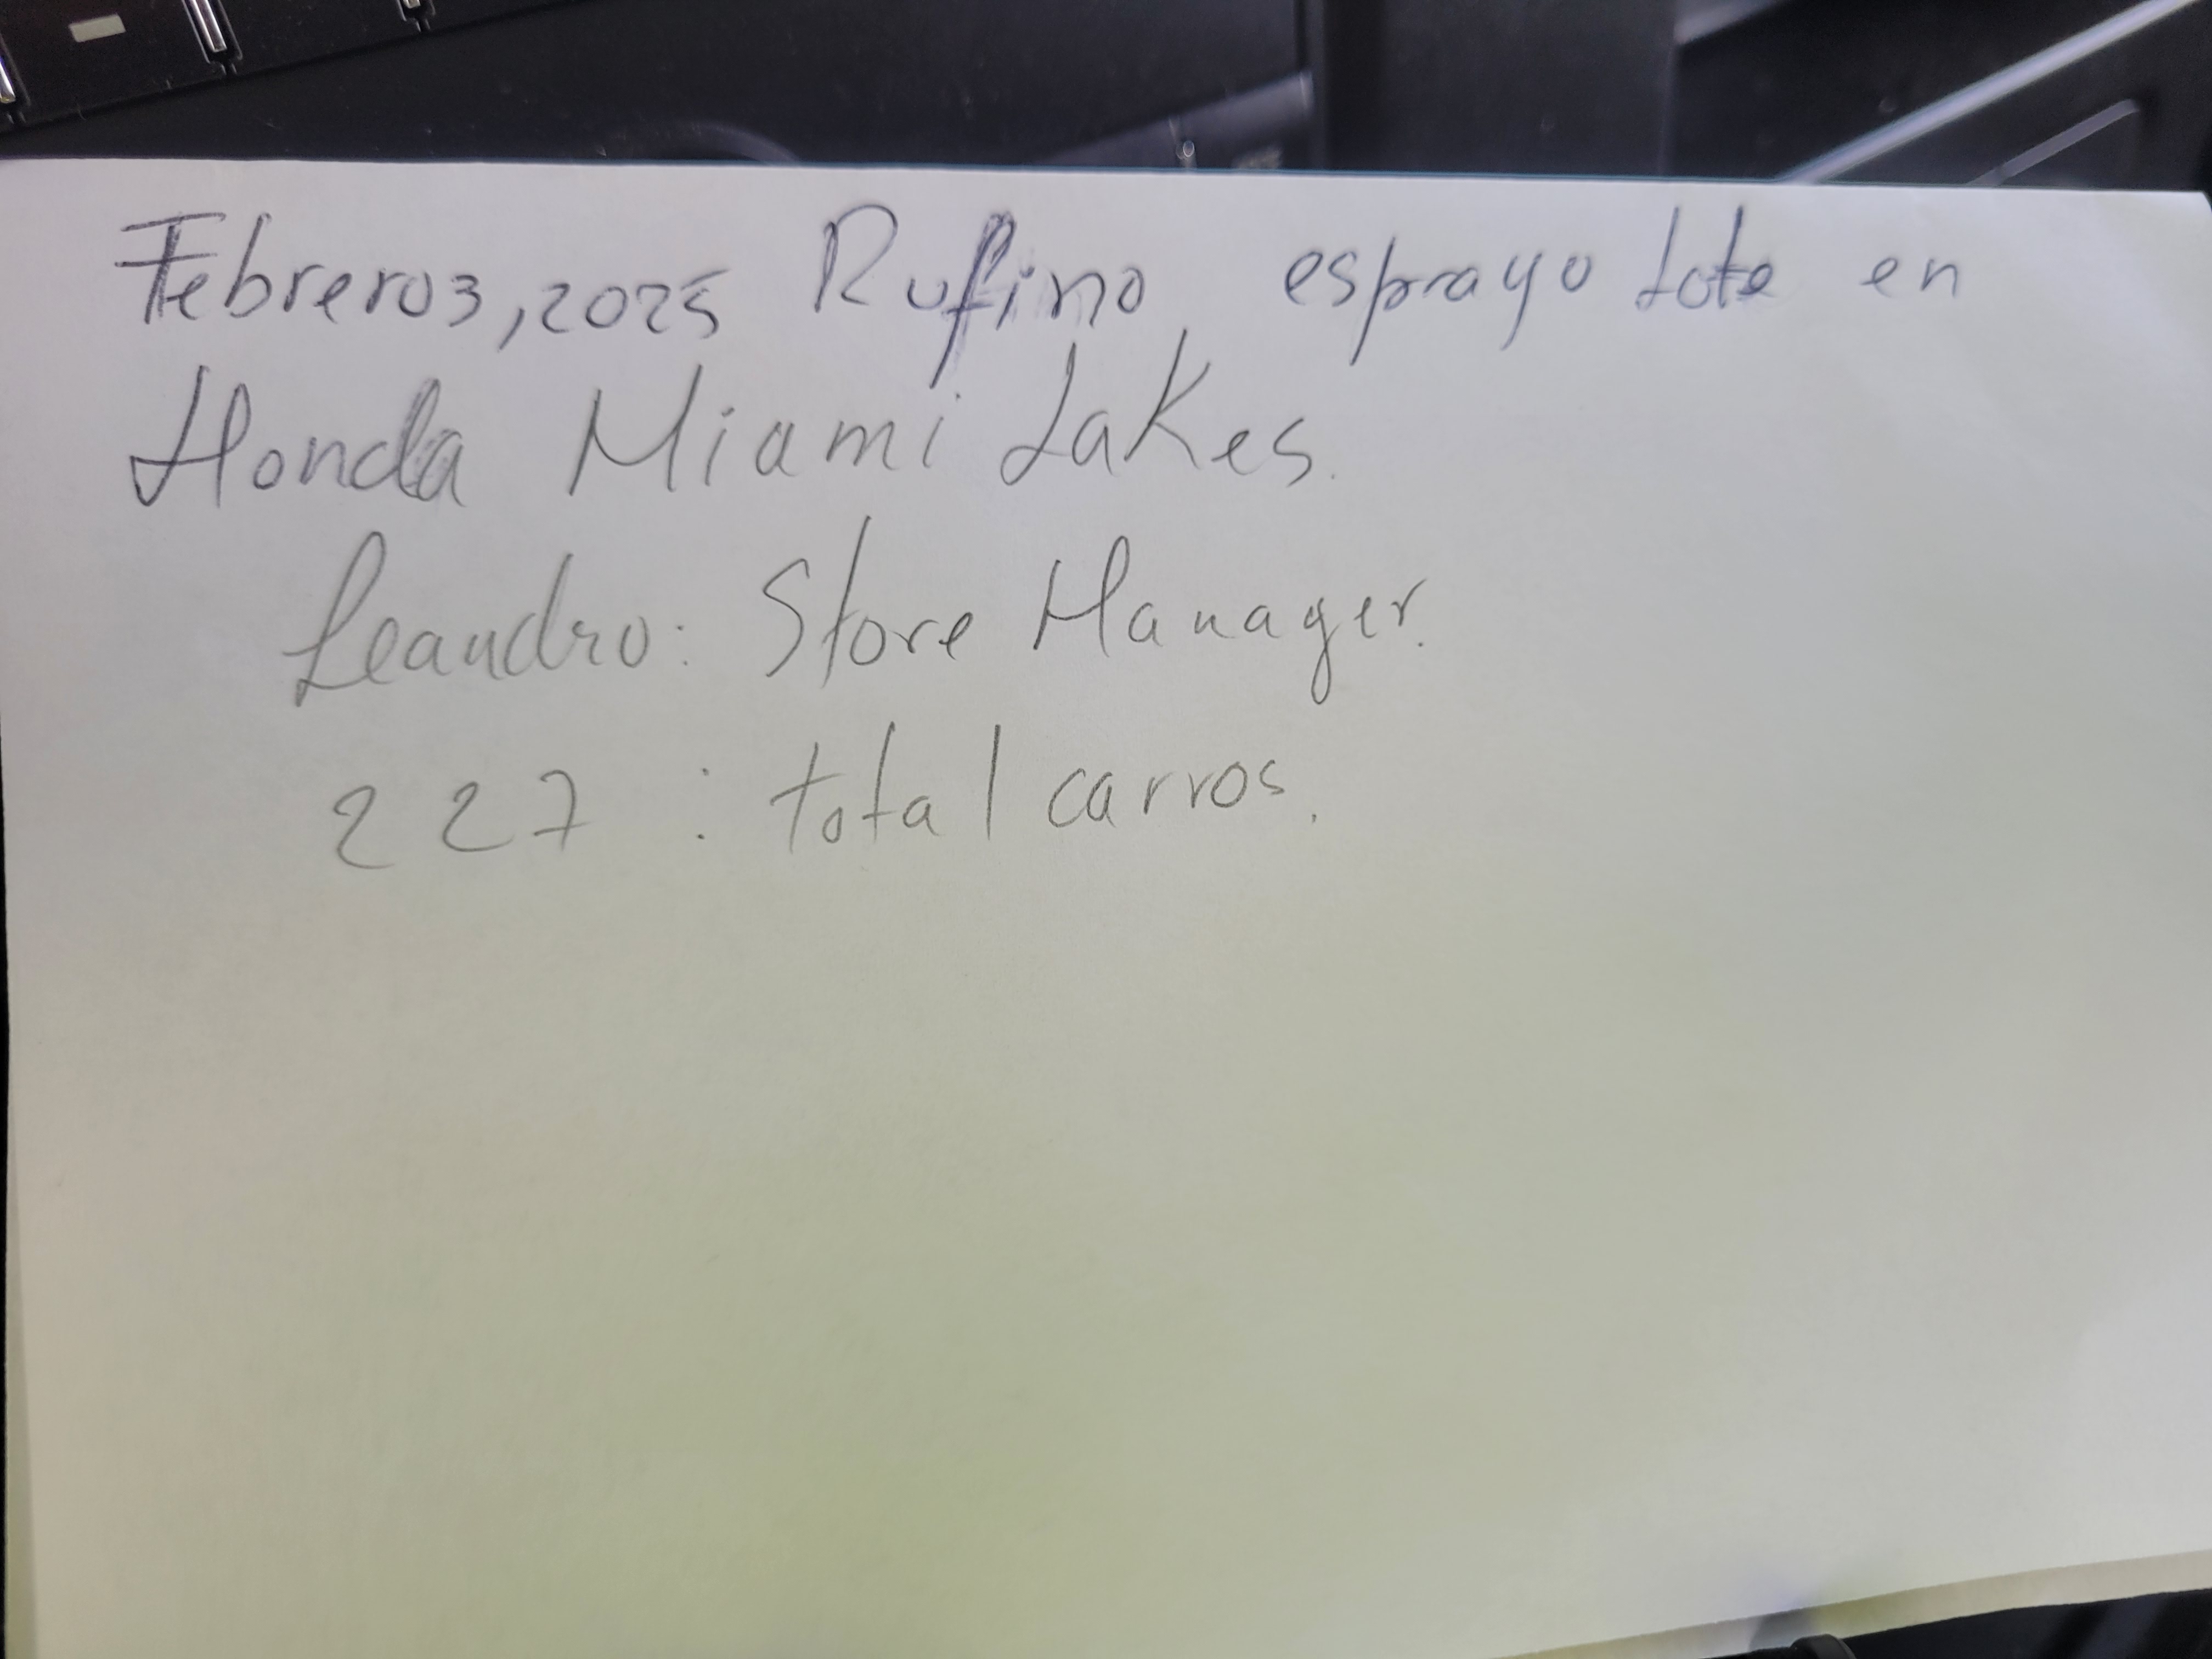 Febrero 3, 2025 Rufino esprayo Lote en
Honda Miami Lakes.
Leandro: Store Manager.
227 : total carros.